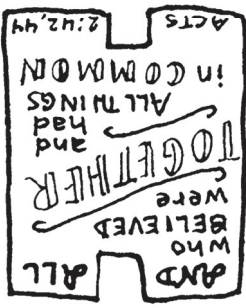 AND ALL
who
BELIEVED
were
TOGETHER
and
had
ALL THINGS
in COMMON
ACTS 2:42,44